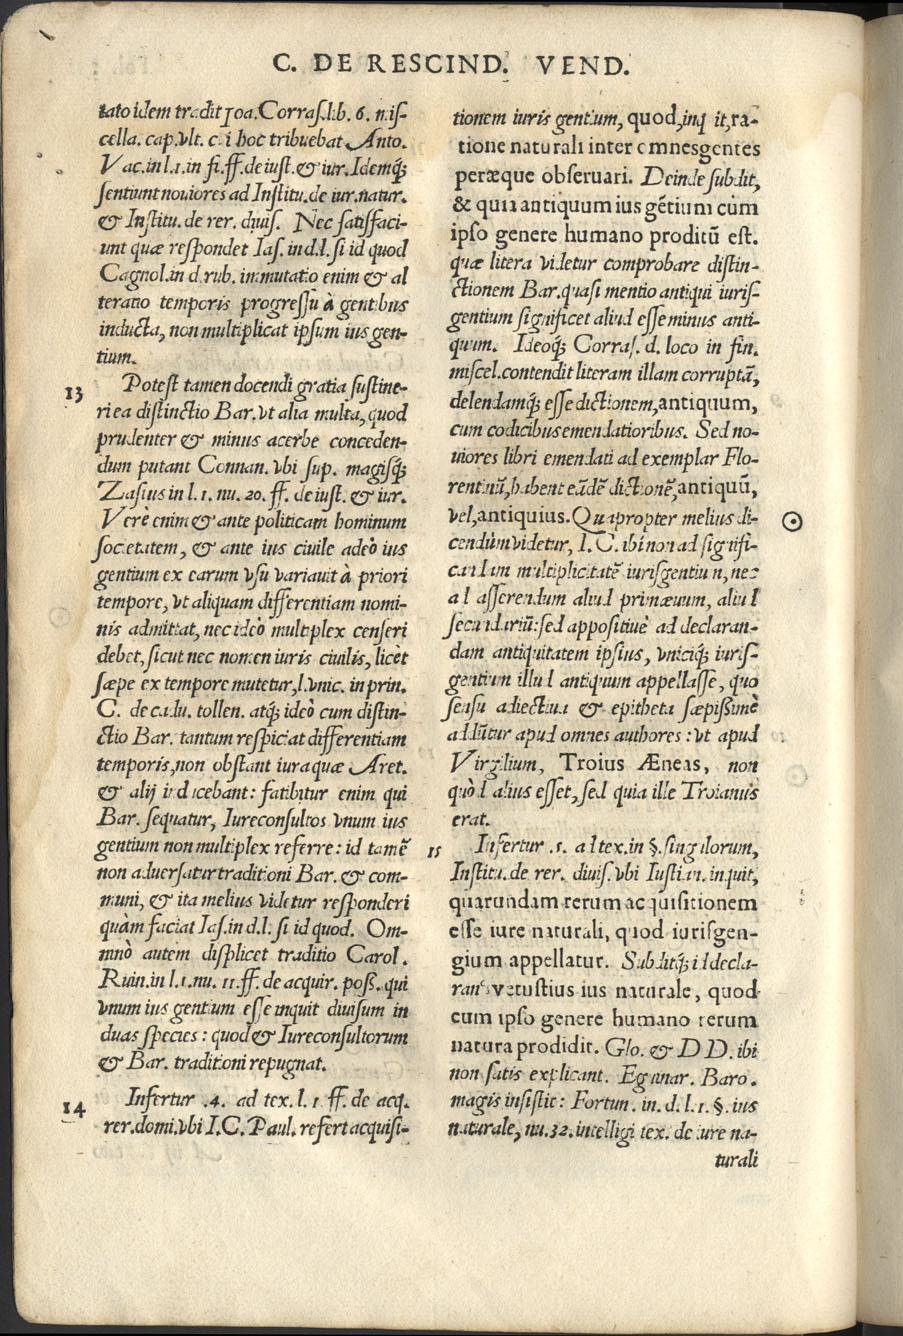 C. DE RESCIND. VEND.
tato idem tradit Ioa. Corras. lib. 6. mis-
cella. cap. vlt. c. i hoc tribuebat Anto.
Vac. in l. 1. in fi. ff. de iust. & iur. Idemq́;
sentiunt nouiores ad Institu. de iur. natur.
& Institu. de rer. diuis. Nec satisfaci-
unt quæ respondet Ias. in d. l. si id quod
Cagnol. in d rub. immutatio enim & al
teratio temporis progressu à gentibus
inducta, non multiplicat ipsum ius gen-
tium.
13 Potest tamen docendi gratia sustine-
ri ea distinctio Bar. vt alia multa, quod
prudenter & minus acerbe conceden-
dum putant Connan. vbi sup. magisq́;
Zasius in l. 1. nu. 20. ff. de iust. & iur.
Verè enim & ante politicam hominum
societatem, & ante ius ciuile adeò ius
gentium ex earum vsu variauit à priori
tempore, vt aliquam differentiam nomi-
nis admittat, nec ideò multiplex censeri
debet, sicut nec nomen iuris ciuilis, licèt
sæpe ex tempore mutetur, l. vnic. in prin.
C. de cadu. tollen. atq́; ideò cum distin-
ctio Bar. tantum respiciat differentiam
temporis, non obstant iura quæ Aret.
& alij inducebant: fatibitur enim qui
Bar. sequatur, Iureconsultos vnum ius
gentium non multiplex referre: id tamē
non aduersatur traditioni Bar. & com-
muni, & ita melius videtur responderi
quàm faciat Ias. in d. l. si id quod. Om-
ninò autem displicet traditio Carol.
Ruin. in l. 1. nu. 11. ff. de acquir. poss. qui
vnum ius gentium esse inquit diuisum in
duas species: quod & Iureconsultorum
& Bar. traditioni repugnat.
14 Infertur .4. ad tex. l. 1 ff. de acq.
rer. domi. vbi I. C. Paul. refert acquisi-
tionem iuris gentium, quod, inquit, ra-
tione naturali inter omnes gentes
peræque obseruari. Deinde subdit,
& quia antiquum ius gētium cùm
ipso genere humano proditū est.
quæ litera videtur comprobare distin-
ctionem Bar. quasi mentio antiqui iuris-
gentium significet aliud esse minus anti-
quum. Ideoq́; Corras. d. loco in fin.
miscel. contendit literam illam corruptā,
delendamq́; esse dictionem, antiquum,
cum codicibus emendatioribus. Sed no-
uiores libri emendati ad exemplar Flo-
rentinū, habent eādē dictionē, antiquū,
vel, antiquius. Quapropter melius di-
cendùm videtur, I. C. ibi non ad signifi-
candam multiplicitatē iuris gentium, nec
ad asserendum aliud primæuum, aliud
secundariū: sed appositiuè ad declaran-
dam antiquitatem ipsius, vniciq́; iuris-
gentium illud antiquum appellasse, quo
sensu adiectiua & epitheta sæpissimè
addūtur apud omnes authores: vt apud
Virgilium, Troius Æneas, non
quòd alius esset, sed quia ille Troianus
erat.
15 Infertur .5. ad tex. in §. singulorum,
Institu. de rer. diuis. vbi Iustian. inquit,
quarundam rerum acquisitionem
esse iure naturali, quod iurisgen-
gium appellatur. Subditq́; id decla-
rans vetustius ius naturale, quod
cum ipso genere humano rerum
natura prodidit. Glo. & DD. ibi
non satis explicant. Eguinar. Baro.
magis insistit: Fortun. in. d. l. 1. §. ius
naturale, nu. 32. intelligi tex. de iure na-
turali